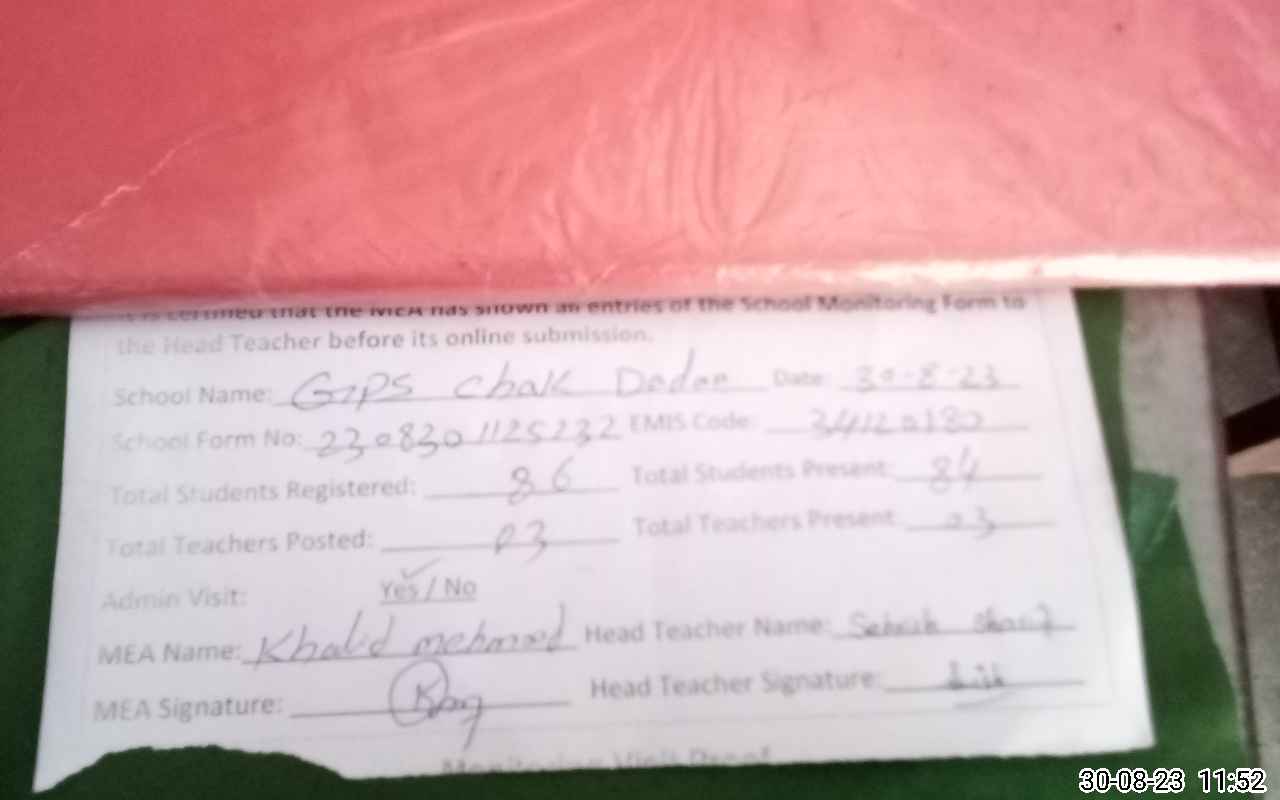 It is certified that the MEA has shown all entries of the School Monitoring Form to
the Head Teacher before its online submission.
School Name: GPS Chak Dadan Date: 30-8-23
School Form No: 2308301125232 EMIS Code: 34120180
Total Students Registered: 86 Total Students Present: 84
Total Teachers Posted: 03 Total Teachers Present 03
Admin Visit: Yes / No
MEA Name: Khalid mehmood Head Teacher Name: Sehrish Sharif
MEA Signature: Head Teacher Signature:
Monitoring Visit Proof
30-08-23 11:52